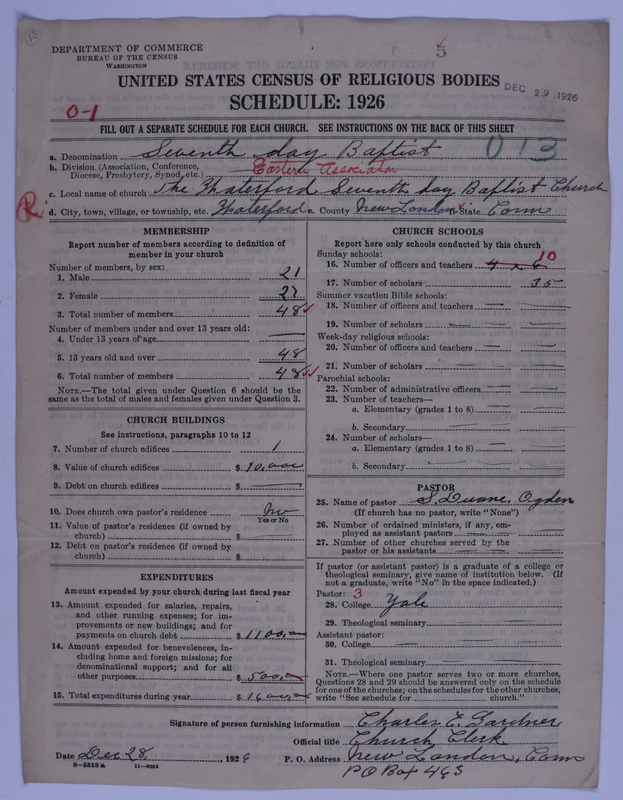 DEPARTMENT OF COMMERCE
BUREAU OF THE CENSUS
WASHINGTON
5
UNITED STATES CENSUS OF RELIGIOUS BODIES
DEC 29 1926
SCHEDULE: 1926
0-1
FILL OUT A SEPARATE SCHEDULE FOR EACH CHURCH. SEE INSTRUCTIONS ON THE BACK OF THIS SHEET
013
a. Denomination Seventh day Baptist
b. Division (Association, Conference, Diocese, Presbytery, Synod, etc.) Eastern Association
c. Local name of church The Waterford Seventh day Baptist Church
R
d. City, town, village, or township, etc. Waterford e. County New London State Conn
MEMBERSHIP
Report number of members according to definition of
member in your church
Number of members, by sex:
1. Male 21
2. Female 27
3. Total number of members 48
Number of members under and over 13 years old:
4. Under 13 years of age —
5. 13 years old and over 48
6. Total number of members 48
NOTE.—The total given under Question 6 should be the
same as the total of males and females given under Question 3.
CHURCH BUILDINGS
See instructions, paragraphs 10 to 12
7. Number of church edifices 1
8. Value of church edifices $ 10,000
9. Debt on church edifices $ —
10. Does church own pastor's residence No
Yes or No
11. Value of pastor's residence (if owned by
church) $
12. Debt on pastor's residence (if owned by
church) $
EXPENDITURES
Amount expended by your church during last fiscal year
13. Amount expended for salaries, repairs,
and other running expenses; for im-
provements or new buildings; and for
payments on church debt $ 1100.00
14. Amount expended for benevolences, in-
cluding home and foreign missions; for
denominational support; and for all
other purposes $ 500
15. Total expenditures during year $ 1600
CHURCH SCHOOLS
Report here only schools conducted by this church
Sunday schools:
16. Number of officers and teachers 4 x 6 10
17. Number of scholars 35
Summer vacation Bible schools:
18. Number of officers and teachers —
19. Number of scholars —
Week-day religious schools:
20. Number of officers and teachers —
21. Number of scholars —
Parochial schools:
22. Number of administrative officers —
23. Number of teachers—
a. Elementary (grades 1 to 8) —
b. Secondary —
24. Number of scholars—
a. Elementary (grades 1 to 8) —
b. Secondary —
PASTOR
25. Name of pastor S. Duane, Ogden
(If church has no pastor, write "None")
26. Number of ordained ministers, if any, em-
ployed as assistant pastors —
27. Number of other churches served by the
pastor or his assistants —
If pastor (or assistant pastor) is a graduate of a college or
theological seminary, give name of institution below. (If
not a graduate, write "No" in the space indicated.)
Pastor: 3
28. College Yale
29. Theological seminary —
Assistant pastor:
30. College —
31. Theological seminary —
NOTE.—Where one pastor serves two or more churches,
Questions 28 and 29 should be answered only on the schedule
for one of the churches; on the schedules for the other churches,
write "See schedule for ............ church."
Signature of person furnishing information Charles E. Gardner
Official title Church Clerk
Date Dec 28, 1926 P. O. Address New London, Conn
8—5518a 11—9554
PO Box 463